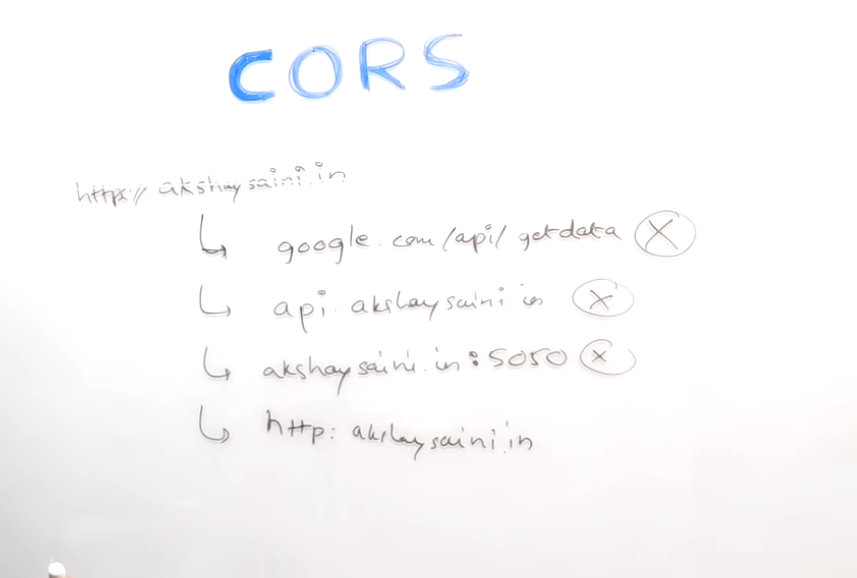 CORS
https:// akshaysaini.in
google.com/api/getdata X
api.akshaysaini.in X
akshaysaini.in:5050 X
http: akshaysaini.in